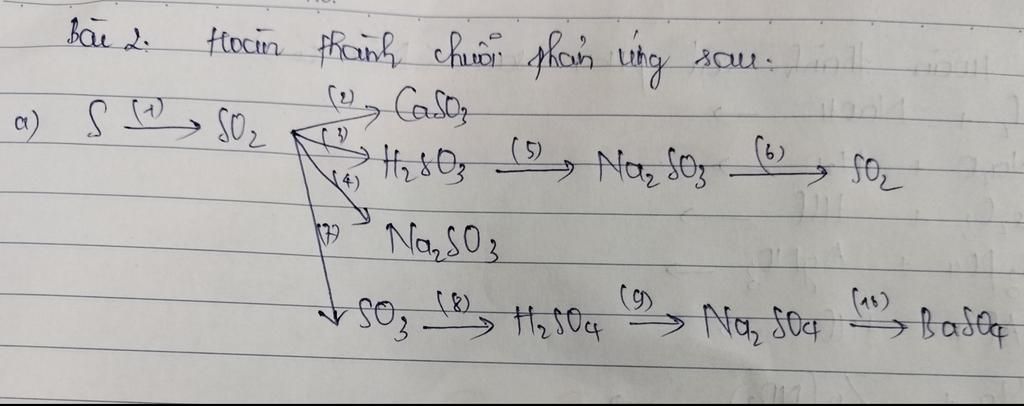 Bài 2. Hoàn thành chuỗi phản ứng sau.
(2) CaSO3
a) S (1) → SO2 (3) H2SO3 (5) → Na2SO3 (6) → SO2
(4) Na2SO3
(7) SO3 (8) → H2SO4 (9) → Na2SO4 (10) → BaSO4